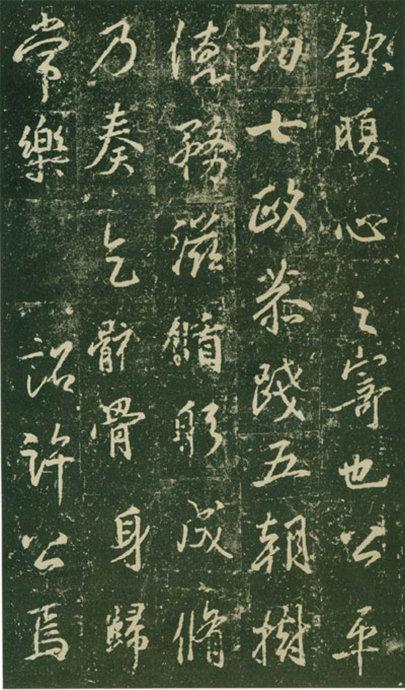 欽腹心之寄也公平
均七政恭踐五朝樹
德務滋躬成脩
乃奏乞骸骨 身歸
常樂 詔許公焉